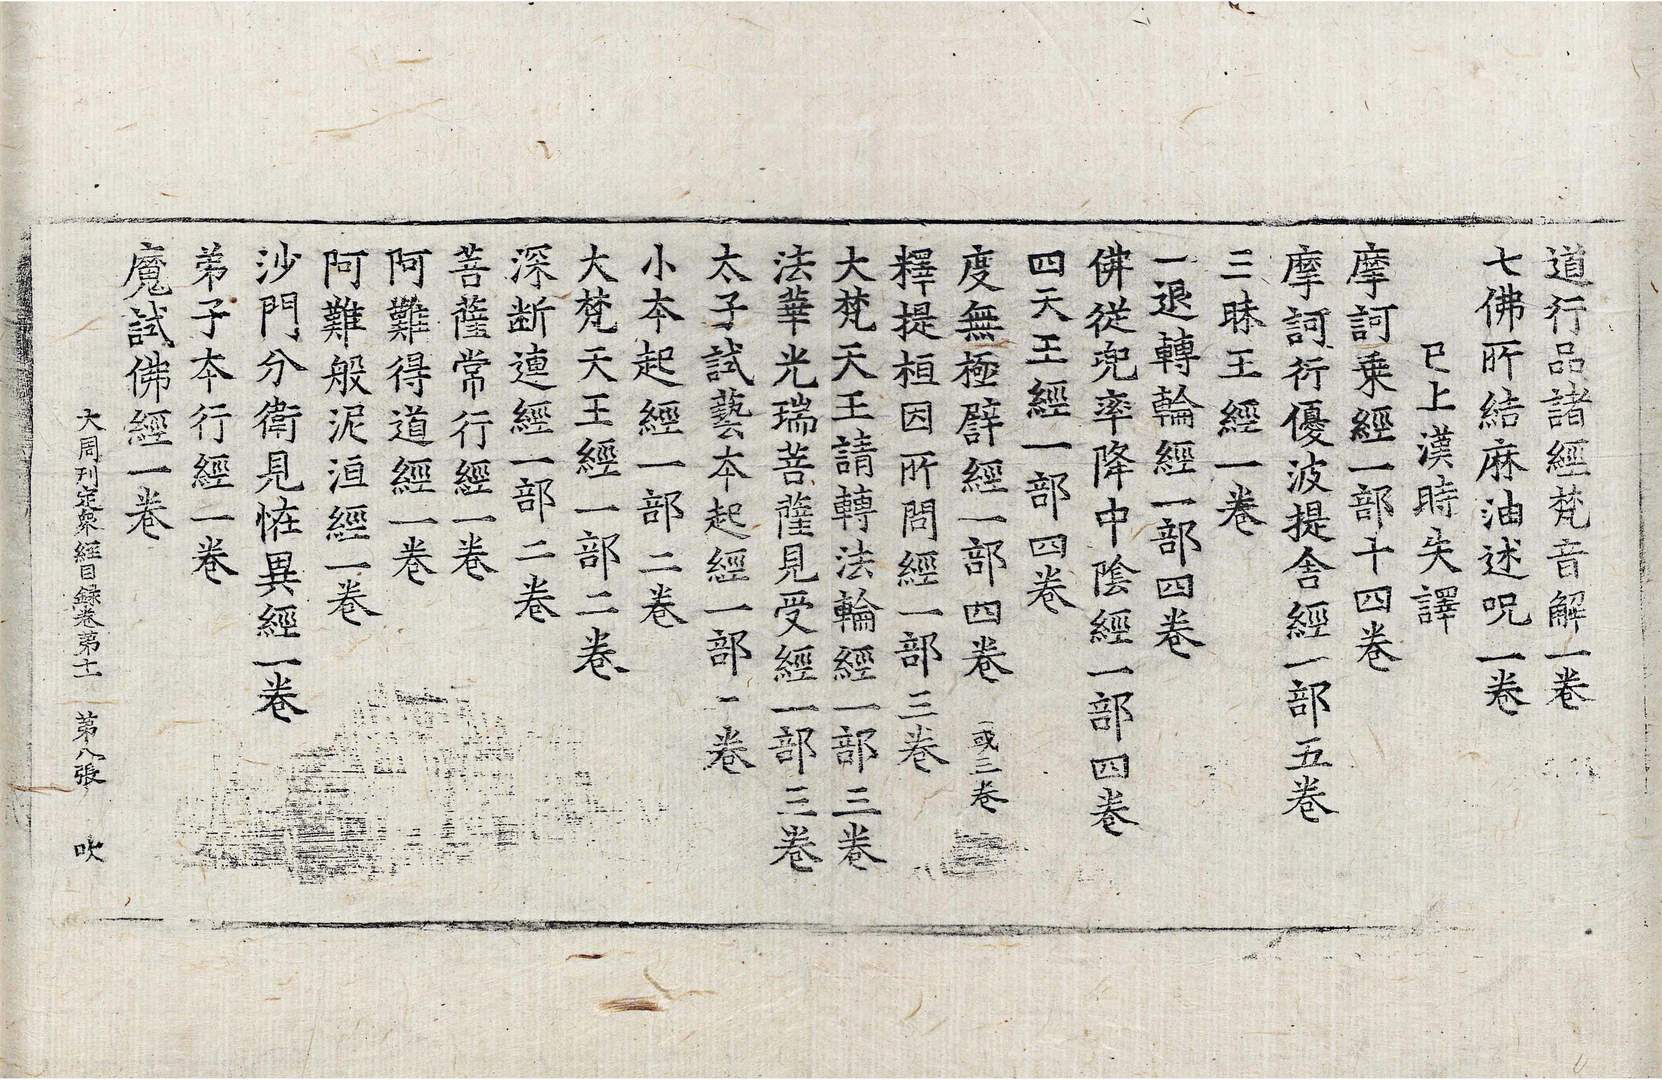 道行品諸經梵音解一卷
七佛所結麻油述呪一卷
已上漢時失譯
摩訶乗經一部十四卷
摩訶衍優波提舍經一部五卷
三昧王經一卷
一退轉輪經一部四卷
佛從兜率降中陰經一部四卷
四天王經一部四卷
度無極譬經一部四卷 一或三卷
釋提桓因所問經一部三卷
大梵天王請轉法輪經一部三卷
法華光瑞菩薩見受經一部三卷
太子試藝本起經一部二卷
小本起經一部二卷
大梵天王經一部二卷
深断連經一部二卷
菩薩常行經一卷
阿難得道經一卷
阿難般泥洹經一卷
沙門分衛見恠異經一卷
弟子本行經一卷
魔試佛經一卷
大周刊定衆經目録卷第十一 第八張 吹